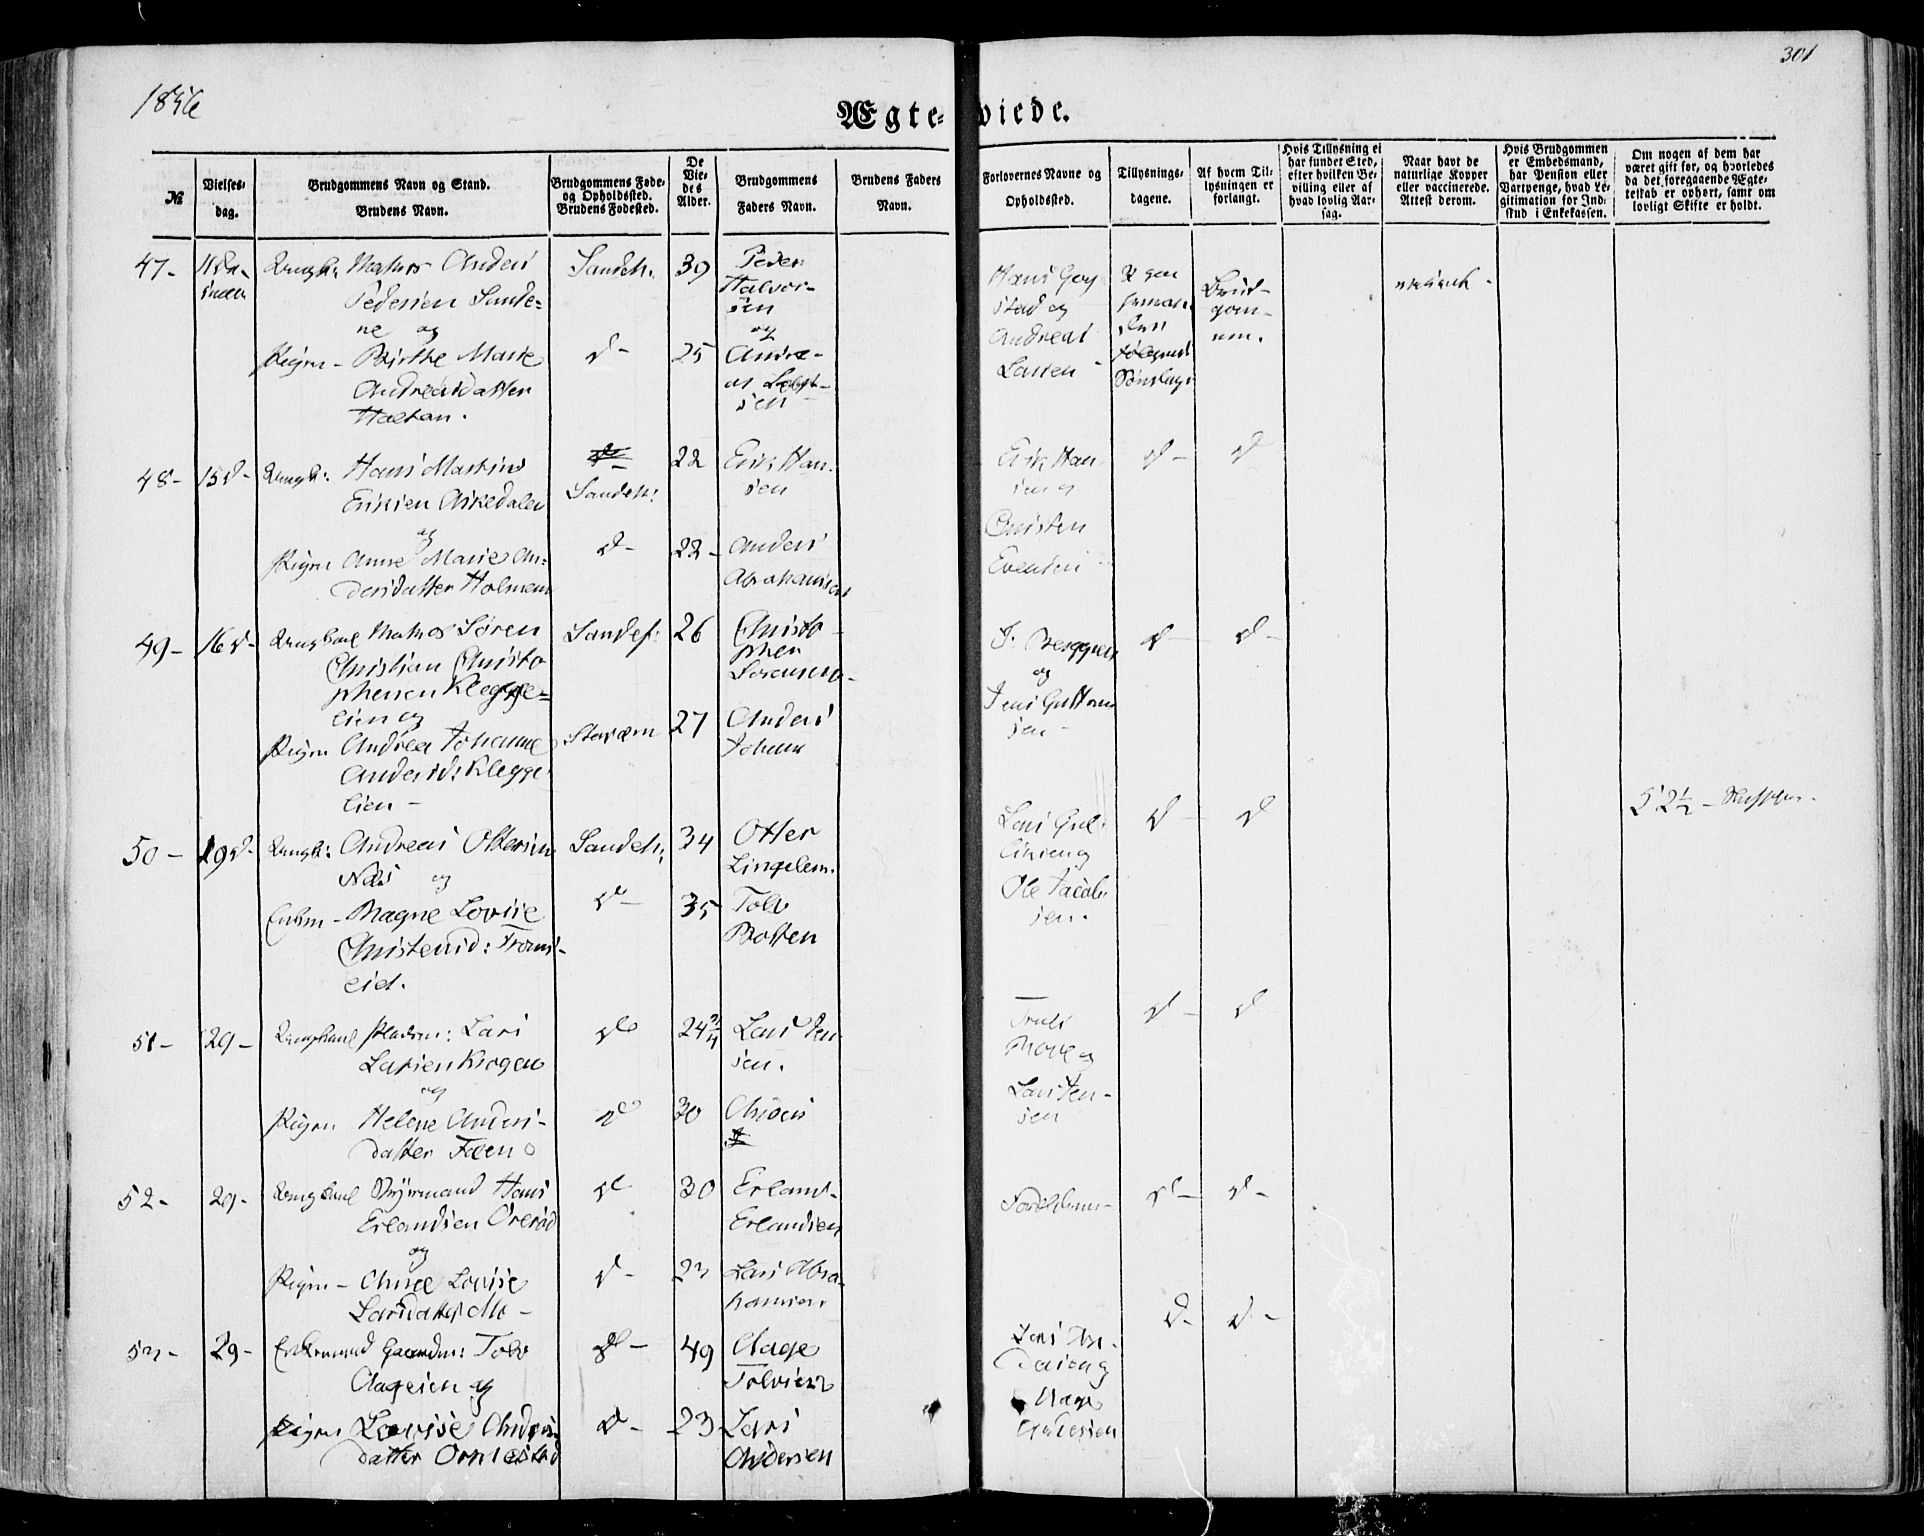 301
1856
Ægte- viede.
№
Vielses-
dag.
Brudgommens Navn og Stand.
Brudens Navn.
Brudgommens Føde-
og Opholdssted.
Brudens Fødested.
De
Vie-
des
Alder.
Brudgommens
Faders Navn.
Brudens Faders
Navn.
Forlovernes Navne og
Opholdssted.
Tillysnings-
dagene.
Af hvem Til-
lysningen er
forlangt.
Hvis Tillysning ei
har fundet Sted,
efter hvilken Be-
villing eller af
hvad lovlig Aar-
sag.
Naar havt de
naturlige Kopper
eller vaccinerede.
Attest derom.
Hvis Brudgommen
er Embedsmand,
har Pension eller
Vartpenge, hvad Le-
gitimation for Ind-
skud i Enkekassen.
Om nogen af dem har
været gift før, og hvorledes
da det foregaaende Ægte-
teskab er ophørt, samt om
lovligt Skifte er holdt.
47-
Ungk: Matros Anders
Pedersen Sande-
ne og
Pigen - Birthe Marie
Andreasdatter
Haltan.
Sandeh.
d-
39
25
Peder
Halvor-
sen
og
Andre-
as
sen
Hans
stad og
Andreas
Larsen
Brud-
gom-
men.
48-
15 d-
Ungk: Hans Martin
Eriksen Askedalen
og
Pigen Anne Marie An-
dersdatter Holmen
Sandeh:
d-
22
22-
Erik Han-
sen
Anders
Abrahamsen
Erik Han-
sen og
Christen
Evensen
d-
d
49-
16 d-
Ungkarl Matros Søren
Christian Christo
phersen Klegge-
lien og
Pigen Andrea Johanne
Andersd: Klegge
lien-
Sandef:
Stavern
26
27
Christo-
pher
Sørensen-
Anders
Johans
J. Berggren
og
Jens Guttorm
sen-
d-
d-
50-
19 d-
Ungk: Andreas Ottersen
Næs og
Enken - Magne Lovise
Christensd: Trams-
eid.
Sandeh:
d-
34
35
Otter
Lingelem.
Tolv
Botten
Lars Gul-
liksen og
Ole Jacob-
sen.
d-
d
5 2½ -
51-
29-
Ungkarl Lars
Larsen Krogen
og
Pigen Helene Anders-
datter Føen
d
d
24¾
30
Lars Jen-
sen.
Anders
Truls
Move og
Lars Jen-
sen
d-
d
52-
29-
Ungkarl Styrmand Hans
Erlandsen Orerød
og
Pigen - Anne Lovise
Larsdatter Mo-
d
d-
30
23
Erland-
Erlandsen
Lars Abra-
hamsen
d-
d-
53-
29-
Enkemand Gaardm: Tolv
Aagesen og
Pigen Lovise Anders
datter Ormestad
d-
d-
49
23
Aage
Tolvsen
Lars
Andersen
Lars An-
dersen og
Aage
d-
d-